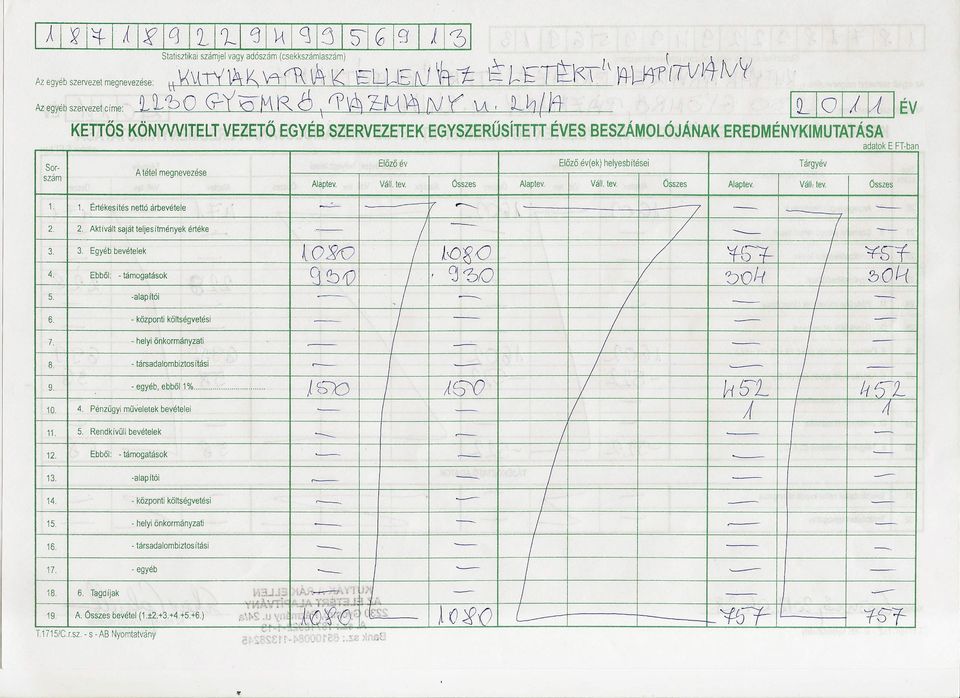 18718929-9499-569-13
Statisztikai számjel vagy adószám (csekkszámlaszám)
Az egyéb szervezet megnevezése: „KUTYÁK A RÁK ELLEN AZ ÉLETÉRT" ALAPÍTVÁNY
Az egyéb szervezet címe: 2230 GYÖMRŐ, PÁZMÁNY u. 24/A 2011 ÉV
KETTŐS KÖNYVVITELT VEZETŐ EGYÉB SZERVEZETEK EGYSZERŰSÍTETT ÉVES BESZÁMOLÓJÁNAK EREDMÉNYKIMUTATÁSA
adatok E FT-ban
Sorszám A tétel megnevezése Előző év Előző év(ek) helyesbítései Tárgyév
Alaptev. Váll. tev. Összes Alaptev. Váll. tev. Összes Alaptev. Váll. tev. Összes
1. 1. Értékesítés nettó árbevétele — — — —
2. 2. Aktivált saját teljesítmények értéke — — — —
3. 3. Egyéb bevételek 1080 1080 757 757
4. Ebből: - támogatások 930 930 304 304
5. -alapítói — — — —
6. - központi költségvetési — — — —
7. - helyi önkormányzati — — — —
8. - társadalombiztosítási — — — —
9. - egyéb, ebből 1%............ 150 150 452 452
10. 4. Pénzügyi műveletek bevételei — — 1 1
11. 5. Rendkívüli bevételek — — — —
12. Ebből: - támogatások — — — —
13. -alapítói — — — —
14. - központi költségvetési — — — —
15. - helyi önkormányzati — — — —
16. - társadalombiztosítási — — — —
17. - egyéb — — — —
18. 6. Tagdíjak — — — —
19. A. Összes bevétel (1.±2.+3.+4.+5.+6.) 1080 1080 757 757
T.1715/C.r.sz. - s - AB Nyomtatvány